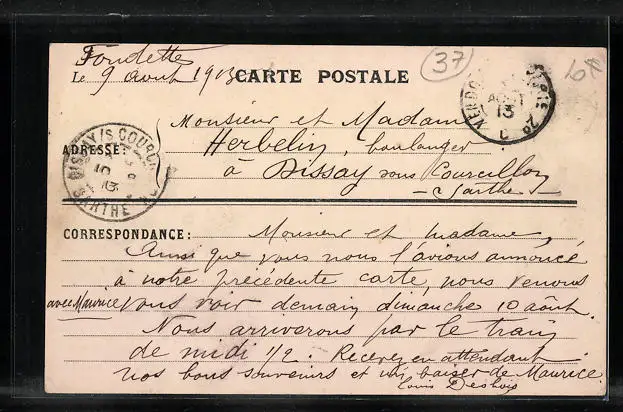 Fondettes
Le 9 août 1913
CARTE POSTALE
37
Monsieur et Madame
ADRESSE: Herbelin, boulanger
à Dissay sous Courcillon
Sarthe
DISSAY/S COURCILLON
SARTHE
13
CORRESPONDANCE: Monsieur et madame,
Ainsi que nous vous l'avions annoncé
à notre précédente carte, nous venons
avec Maurice vous voir demain dimanche 10 août.
Nous arriverons par le train
de midi 1/2. Recevez en attendant
nos bons souvenirs et un baiser de Maurice.
Louis